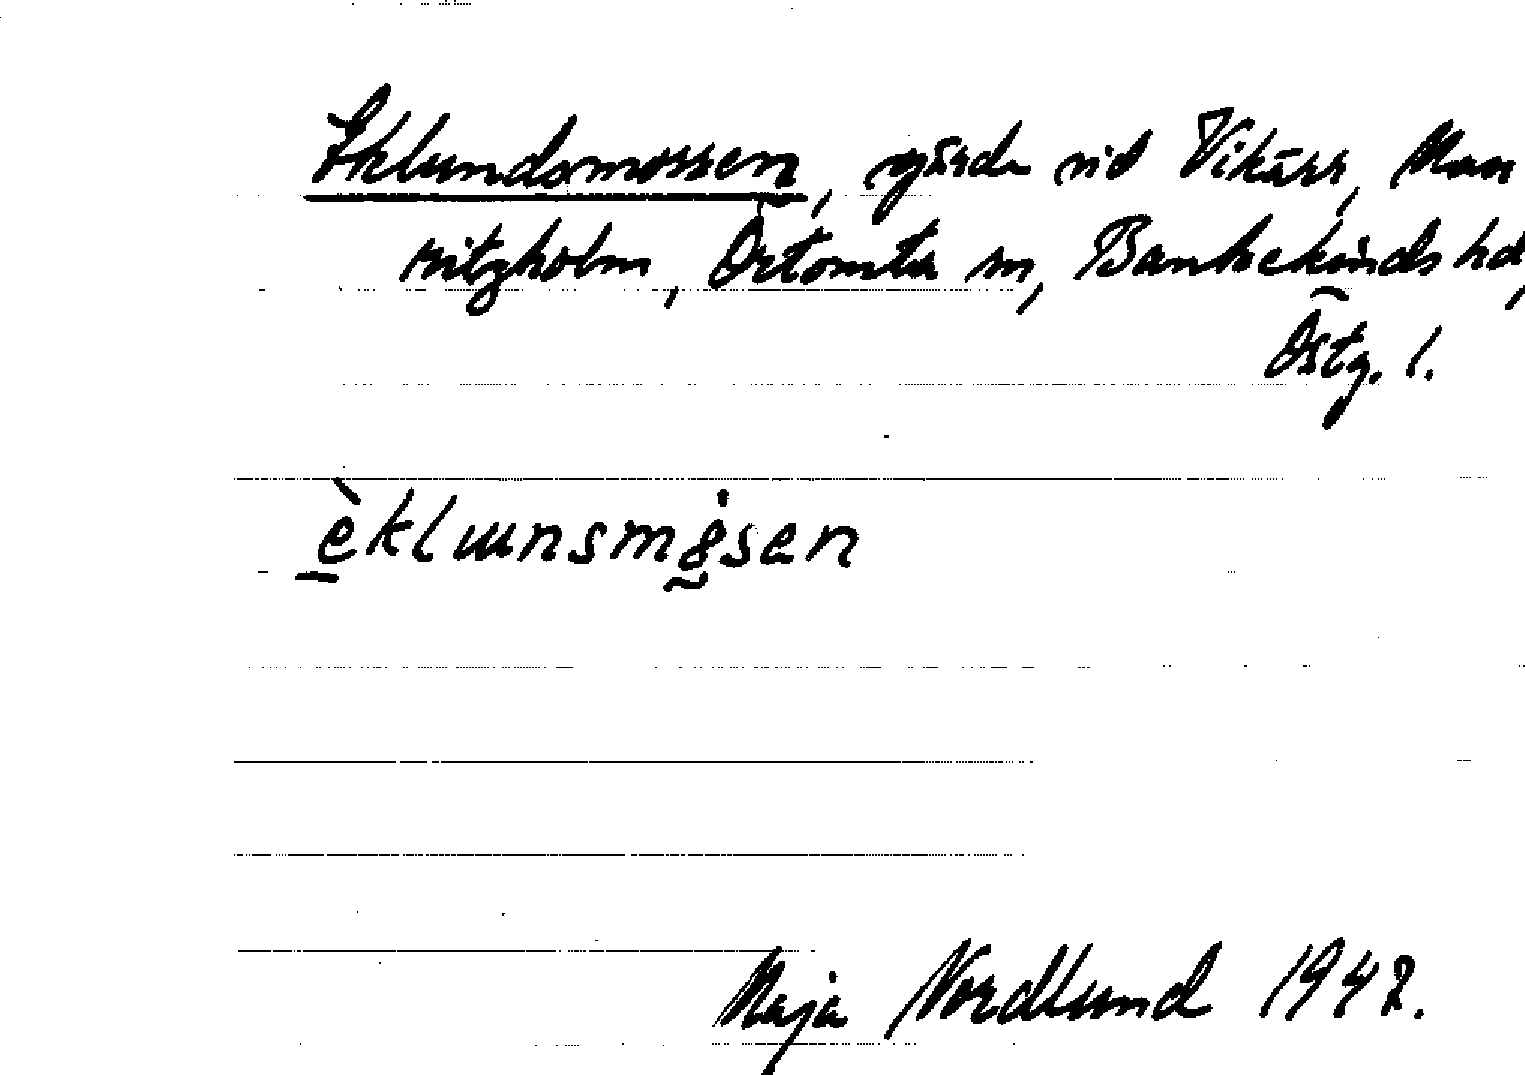 Eklundsmossen, gärde vid Vikärr, Mau
ritzholm, Örtomta sn, Bankekinds hd,
Östg. l.
èklɯnsmo̤sen
Maja Nordlund 1942.